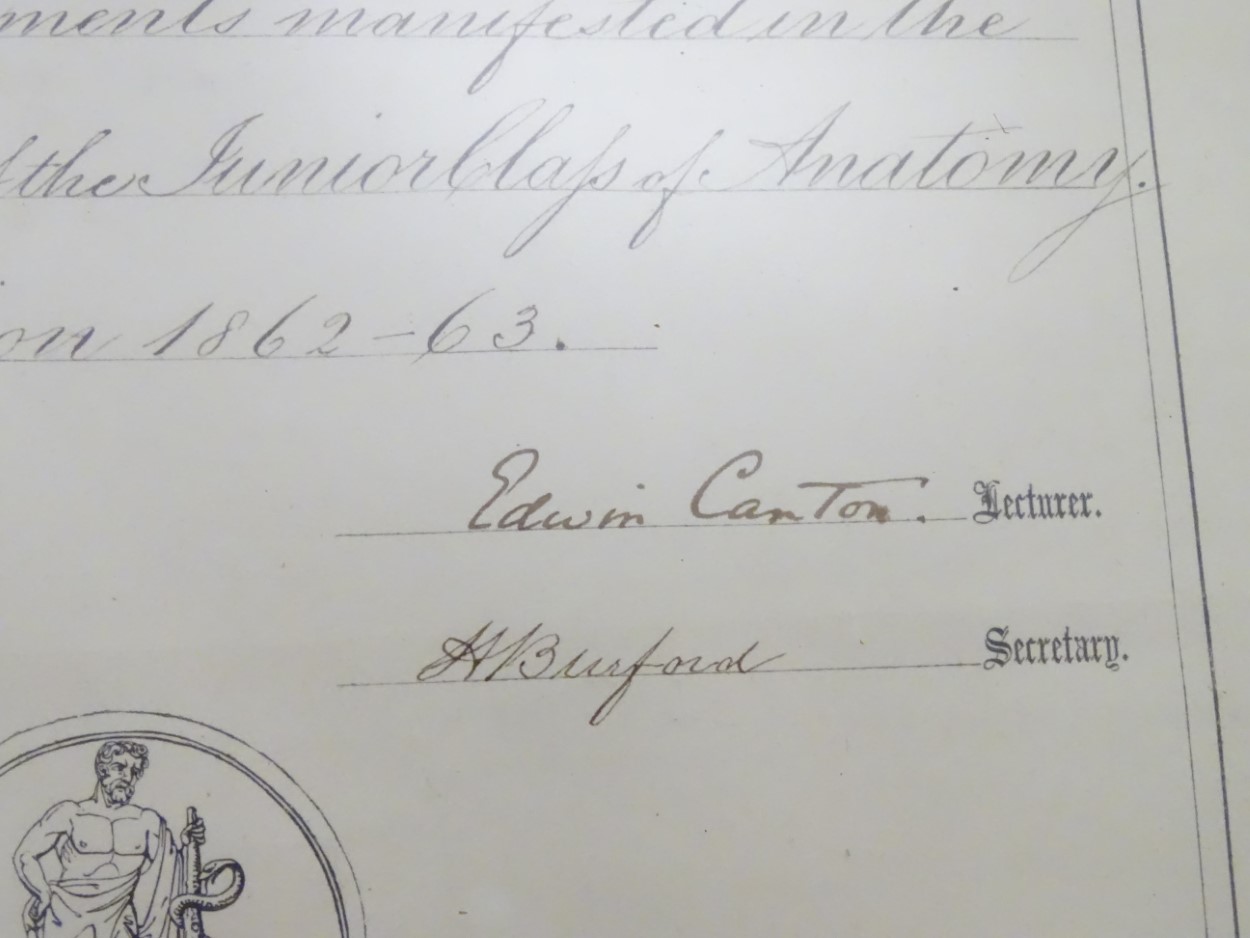 ments manifested in the
f the Junior Claſs of Anatomy.
on 1862-63.
Edwin Canton. Lecturer.
H Burford Secretary.